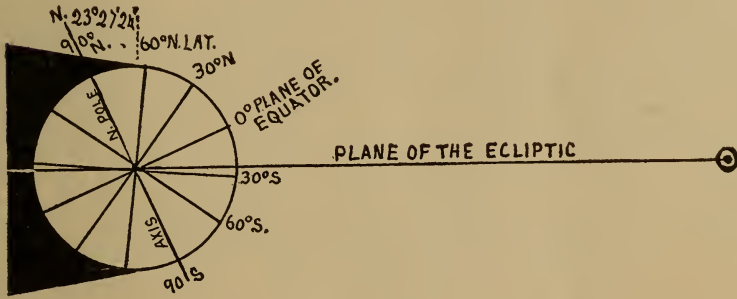 N. 23°27'24"
90° N.
60° N. LAT.
30° N
0° PLANE OF
EQUATOR.
N. POLE
PLANE OF THE ECLIPTIC
30° S
60° S.
AXIS
90° S